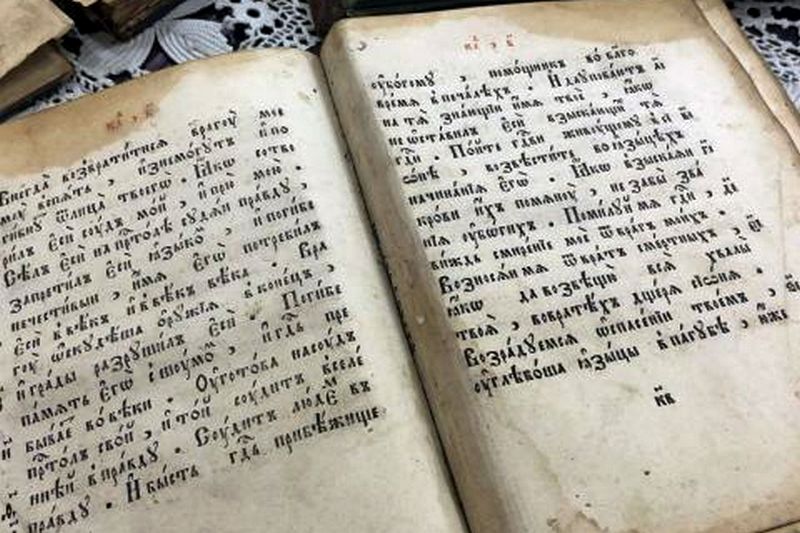 ка҃ , в҃
Внегда̀ возврати́тисѧ врагоу̀ мое
моу̀ вспѧ́ть , и҆знемо́гꙋтъ и҆ по
ги́бнꙋ ѿ лица̀ твоегѡ̀ . Ꙗ҆́кѡ сотво
ри́лъ є҆сѝ соу́дъ мо́й , и҆ прю̀ мою̀ .
Сѣ́лъ є҆сѝ на прⷭ҇то́лѣ сꙋдѧ́и пра́вдꙋ ,
запрети́лъ є҆сѝ ꙗ҆зы́кѡ , и҆ поги́бе
нечести́выи , и҆́мѧ є҆гѡ̀ потреби́лъ
є҆сѝ в вѣ́къ и҆ в вѣ́къ вѣ́ка . Вра
гоу̀ ѡ҆скꙋдѣ́ша ѻ҆рꙋ́жїѧ в коне́цъ ,
и҆ гра́ды разрꙋши́лъ є҆сѝ . Поги́бе
па́мѧть є҆гѡ̀ с шоу́мѡ , и҆ гдⷭ҇ь пре
быва́е во вѣ́ки . Оу҆гото́ва на соу́дъ
прⷭ҇то́лъ сво́й , и҆ то́й соу́дитъ вселе́
нѣ́й в пра́вдꙋ . Соу́дитъ лю́дѣ въ
пра́вдꙋ . И҆ бы́сть гдⷭ҇ь прибѣ́жище
ка҃ , в҃
оу҆бо́гомꙋ , помо́щникъ во бл҃го
вре́мѧ в печа́лѣхъ . И҆ да оу҆пова́ютъ
на тѧ̀ зна́ющїи и҆́мѧ твоѐ , ꙗ҆́кѡ
не ѡ҆ста́вилъ є҆сѝ взыска́ющи тѧ̀
гдⷭ҇и . По́йте гдⷭ҇ви живоу́щемꙋ в сї
ѡ́нѣ , возвѣсти́те во ꙗ҆зы́цѣхъ
начина́нїѧ є҆гѡ̀ . Ꙗ҆́кѡ взыска́ѧи
кро́ви и҆́хъ помѧнꙋ̀ , не забы̀ зва́
нїѧ оу҆бо́гихъ . Поми́лꙋй мѧ гдⷭ҇и ,
ви́ждь смире́нїе моѐ ѿ вра́гъ мои́хъ .
Вознося́и мѧ ѿ вра́тъ сме́ртныхъ ,
ꙗ҆́кѡ да возвѣщꙋ̀ всѧ̀ хвалы̀
твоѧ̀ , во вратѣ́хъ дще́ре сїѡ́нѧ .
Возра́дꙋемсѧ ѡ҆ спасе́нїи твое́мъ ,
оу҆глѣбо́ша ꙗ҆зы́цы в па́гꙋбѣ , ю҆́же
к҃в